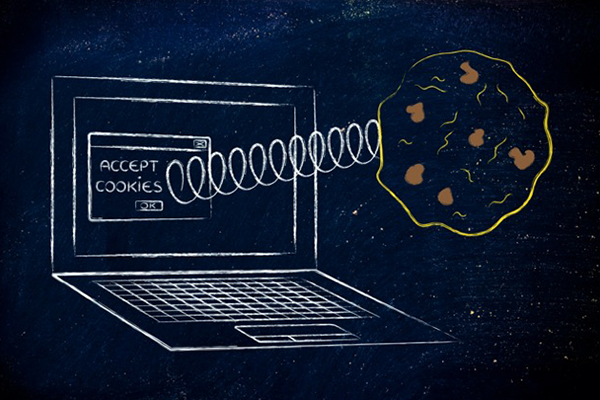 ACCEPT
COOKIES
OK